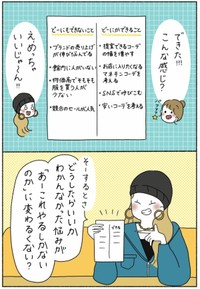 できた!!!
こんな感じ?
どーにかできること
・提案できるコーデ
の幅を増やす
・お店に入りたくなる
マネキンコーデ
を考える
・SNSで呼びこむ
・安いコーデを考える
どーにもできないこと
・ブランドの売り上げ
が伸び悩んでる
・館内に人がいない
・物価高でそもそも
服を買う人が
少ない
・競合のセールが人気
え、めっちゃ
いいじゃ〜ん!!
そーするとさ
どうしたらいーか
わかんなかった悩みが
「あーこれやるしかない
のか」に変わるくない?